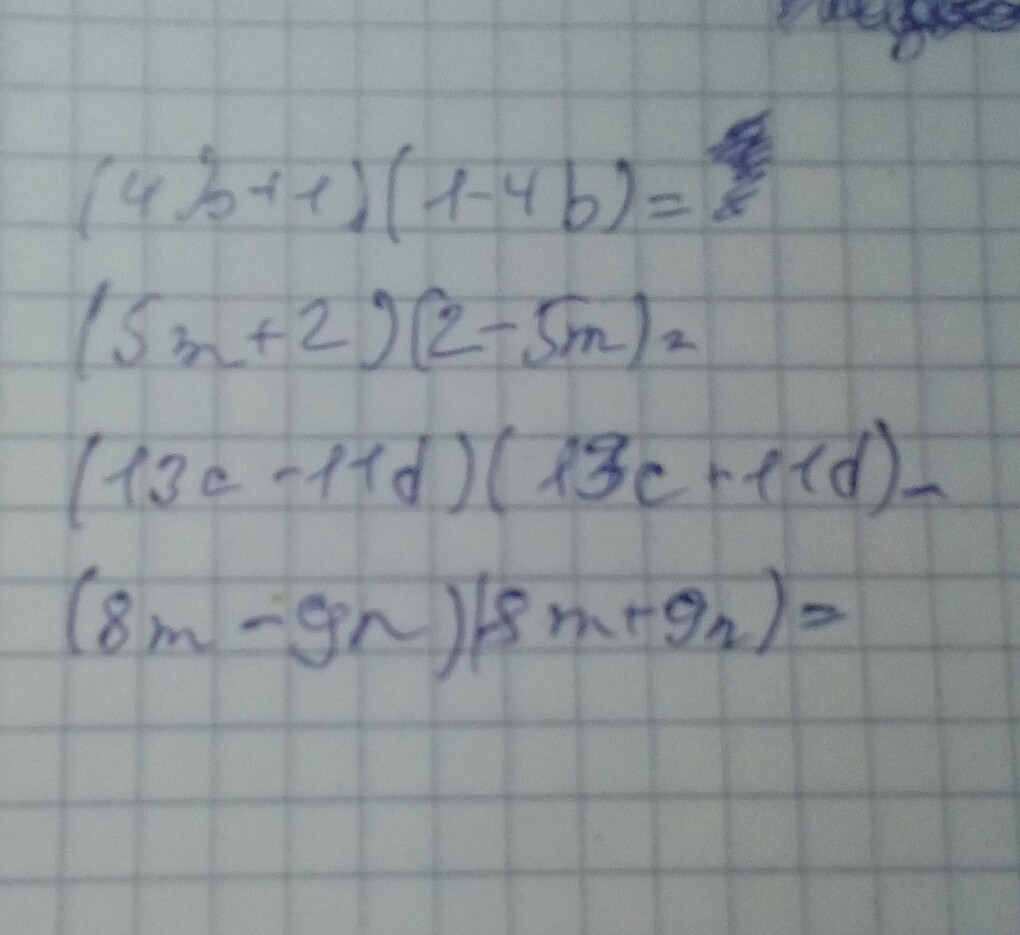 (4b+1)(1-4b)=
(5m+2)(2-5m)=
(13c-11d)(13c+11d)-
(8m-9n)(8m+9n)=